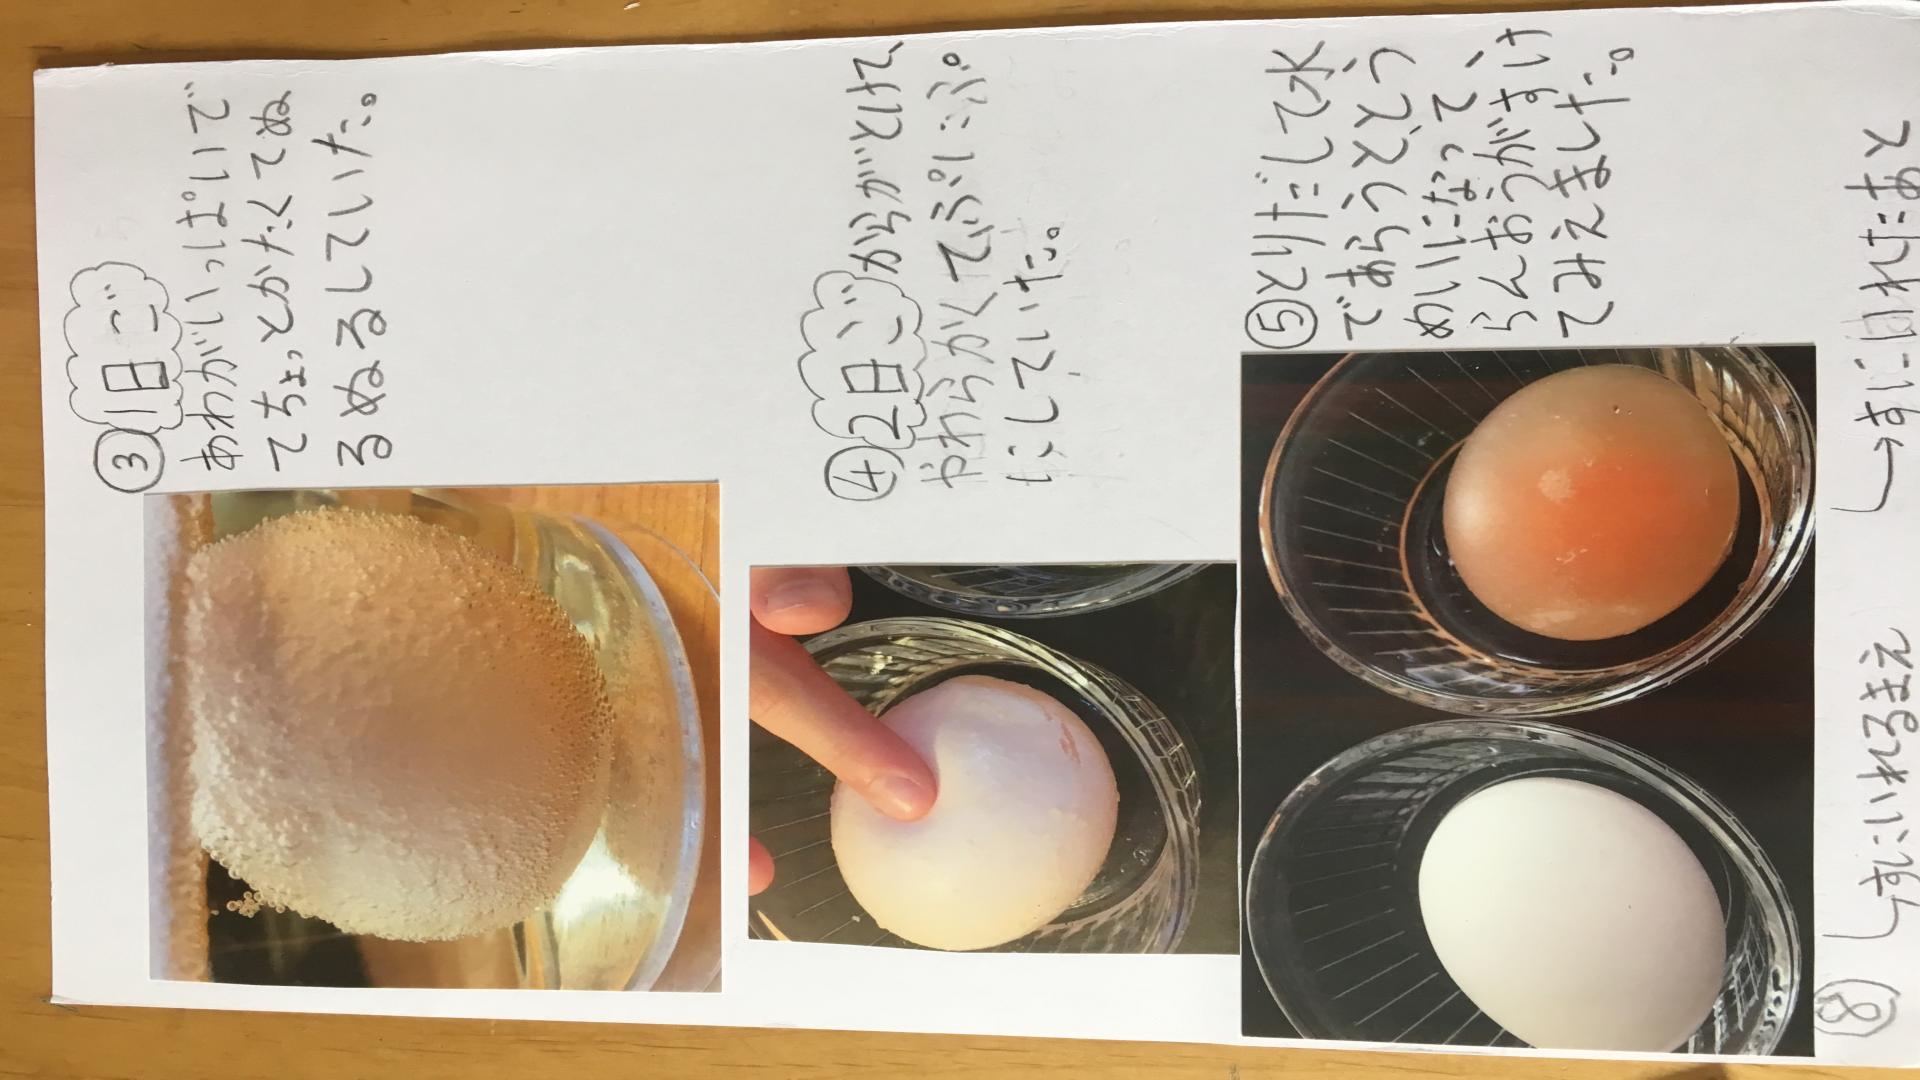 ③1日ご
あわがいっぱいで
てちょっとかたくてぬ
るぬるしていた。
④2日ごからがとけて、
やわらかくてぷにぷ
にしていた。
⑤とりだして水
であらうととう
めいになって、
らんおうがすけ
てみえました。
すにいれるまえ
すに入れたあと
⑧